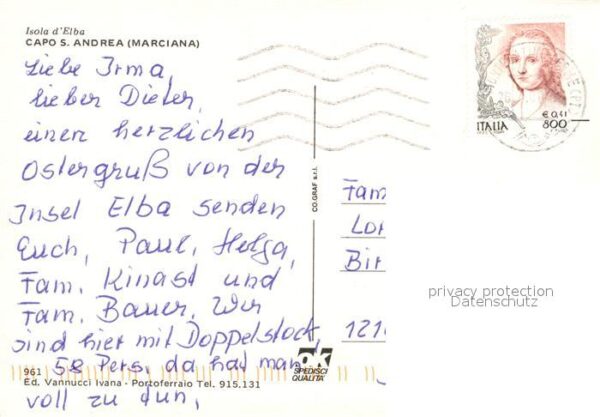 Isola d'Elba
CAPO S. ANDREA (MARCIANA)
Liebe Irma,
lieber Dieter,
einen herzlichen
Ostergruß von der
Insel Elba senden
Euch, Paul, Helga,
Fam. Kinast und
Fam. Bauer. Wir
sind hier mit Doppelstock,
58 Pers. da hat man
voll zu tun,
961
Ed. Vannucci Ivana - Portoferraio Tel. 915.131
CO.GRAF s.r.l.
OK
SPEDISCI
QUALITÀ
€ 0,41
ITALIA 800
Fam
Lor
Bir
121
privacy protection
Datenschutz